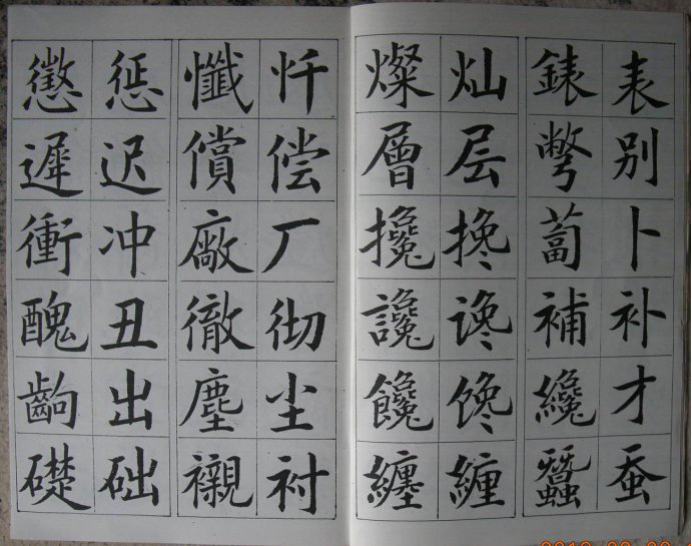 表别卜补才蚕
錶彆蔔補纔蠶
灿层搀谗馋缠
燦層攙讒饞纏
忏偿厂彻尘衬
懺償廠徹塵襯
惩迟冲丑出础
懲遲衝醜齣礎